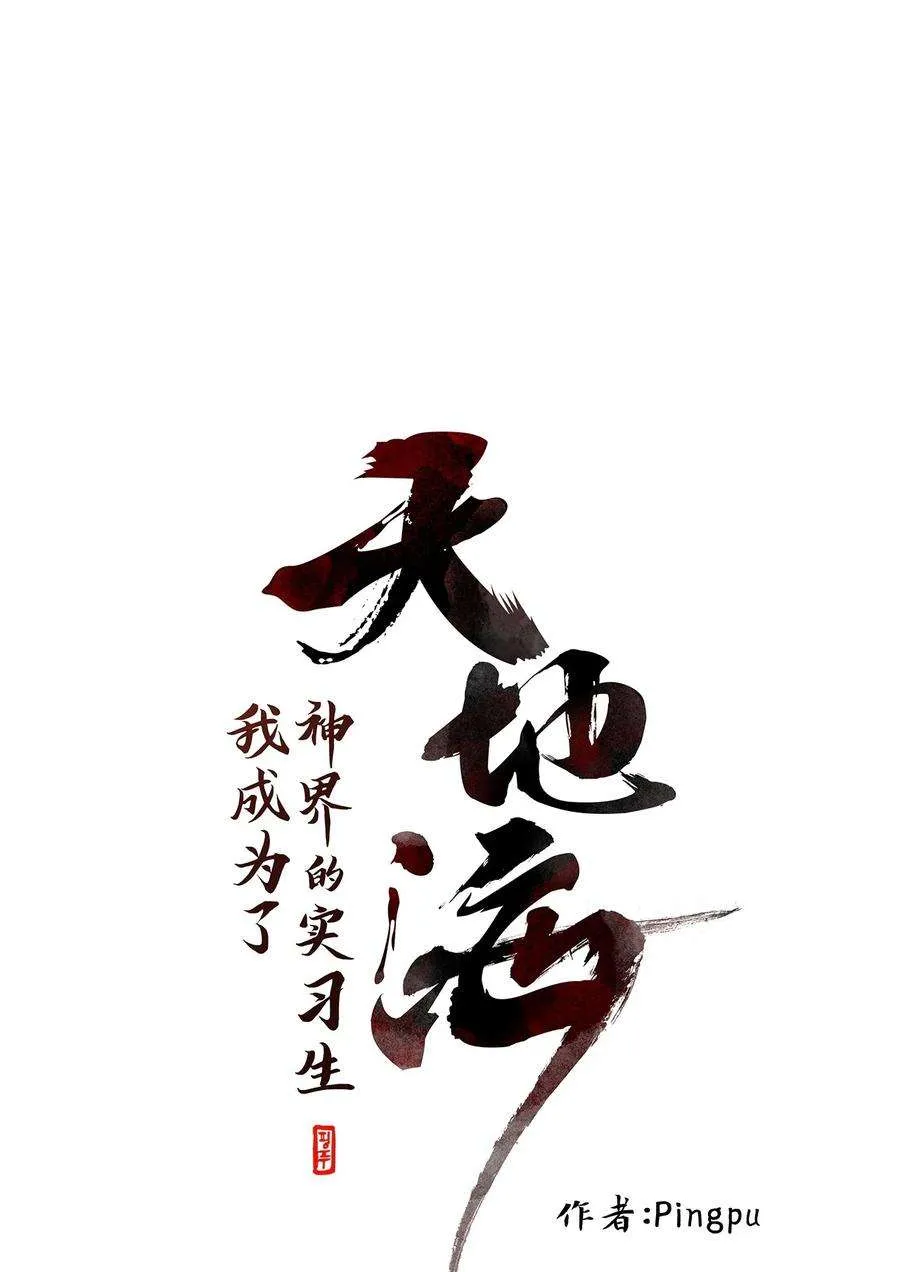 天地海
我成为了
神界的实习生
作者:Pingpu